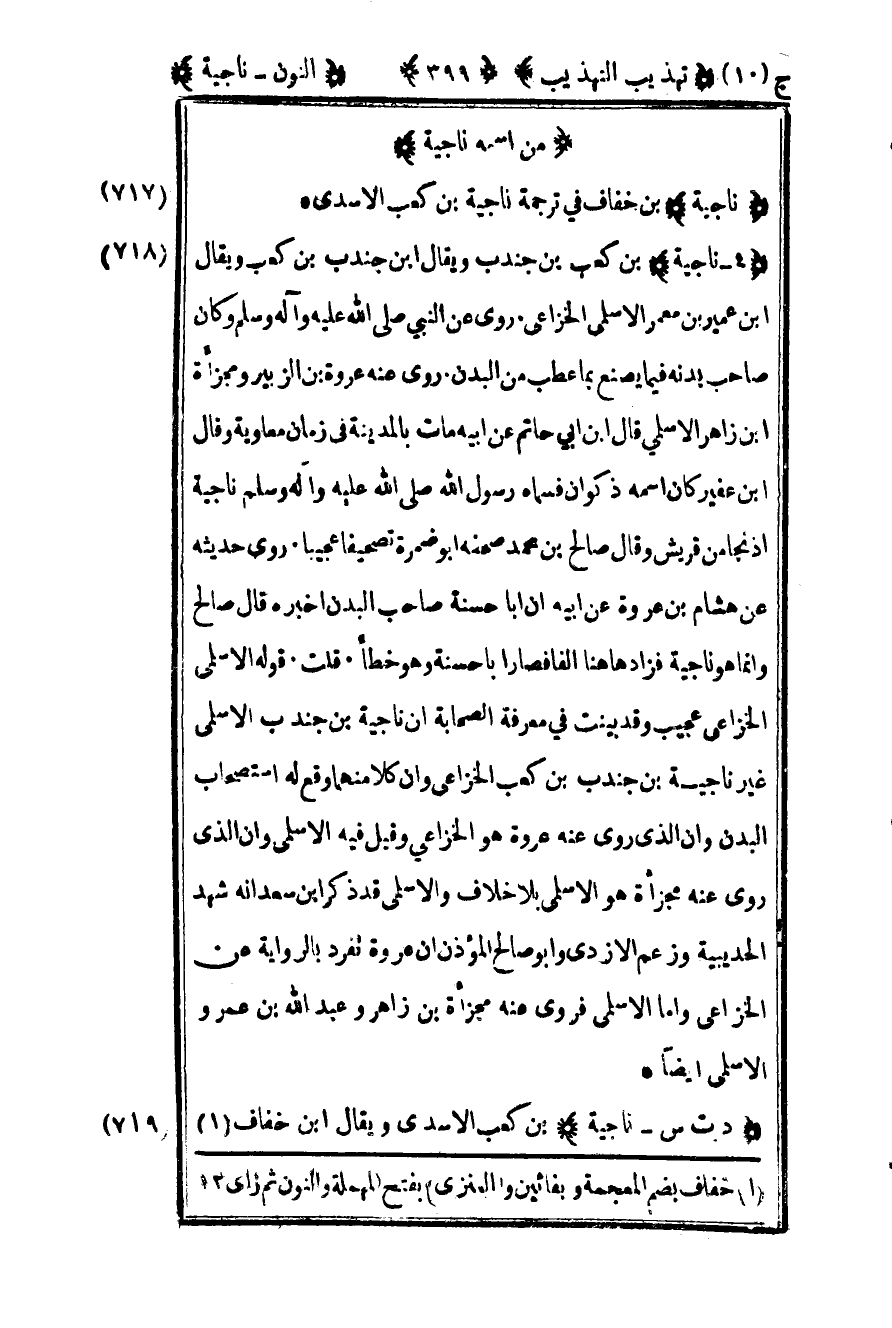 ج (١٠) ﴿ تهذيب التهذيب ﴾ ﴿ ٣٩٩ ﴾ ﴿ النون - ناجية ﴾
﴿ من اسمه ناجية ﴾
(٧١٧) ﴿ ناجية ﴾ بن خفاف في ترجمة ناجية بن كعب الاسدى ٠
(٧١٨) ﴿ ٤ - ناجية ﴾ بن كعب بن جندب ويقال ابن جندب بن كعب ويقال
ابن عمير بن معمر الاسلمى الخزاعى ٠ روى عن النبي صلى الله عليه وآله وسلم وكان
صاحب بدنه فيما يصنع بما عطب من البدن ٠ روى عنه عروة بن الزبير ومجزأة
ابن زاهر الاسلمي قال ابن ابي حاتم عن ابيه مات بالمدينة فى زمان معاوية وقال
ابن عفير كان اسمه ذكوان فسماه رسول الله صلى الله عليه وآله وسلم ناجية
اذ نجا من قريش وقال صالح بن محمد صحفه ابو ضمرة تصحيفا عجيبا ٠ روى حديثه
عن هشام بن عروة عن ابيه ان ابا حسنة صاحب البدن اخبره قال صالح
وانما هو ناجية فزاد هاهنا الفا فصار ابا حسنة وهو خطأ ٠ قلت ٠ قوله الاسلمى
الخزاعى عجيب وقد بينت في معرفة الصحابة ان ناجية بن جندب الاسلمى
غير ناجيـة بن جندب بن كعب الخزاعى وان كلا منهما وقع له استصحاب
البدن وان الذى روى عنه عروة هو الخزاعي وقيل فيه الاسلمى وان الذى
روى عنه مجزأة هو الاسلمى بلا خلاف والاسلمى قد ذكر ابن سعد انه شهد
الحديبية وزعم الازدى وابو صالح المؤذن ان عروة تفرد بالرواية عن
الخزاعى واما الاسلمى فروى عنه مجزأة بن زاهر و عبد الله بن عمر و
الاسلمى ايضاً ٠
(٧١٩) ﴿ د ت س - ناجية ﴾ بن كعب الاسدى ويقال ابن خفاف (١)
(١) خفاف بضم المعجمة و بفائين و (العنزى) بفتح المهملة والنون ثم زاى ١٢